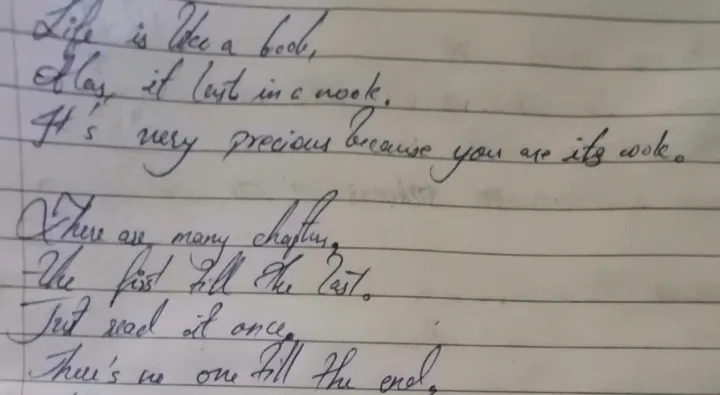 Life is like a book,
Alas, it last in a nook.
It's very precious because you are its cook.
There are many chapters,
The first till the last.
Just read it once,
There's no one till the end,